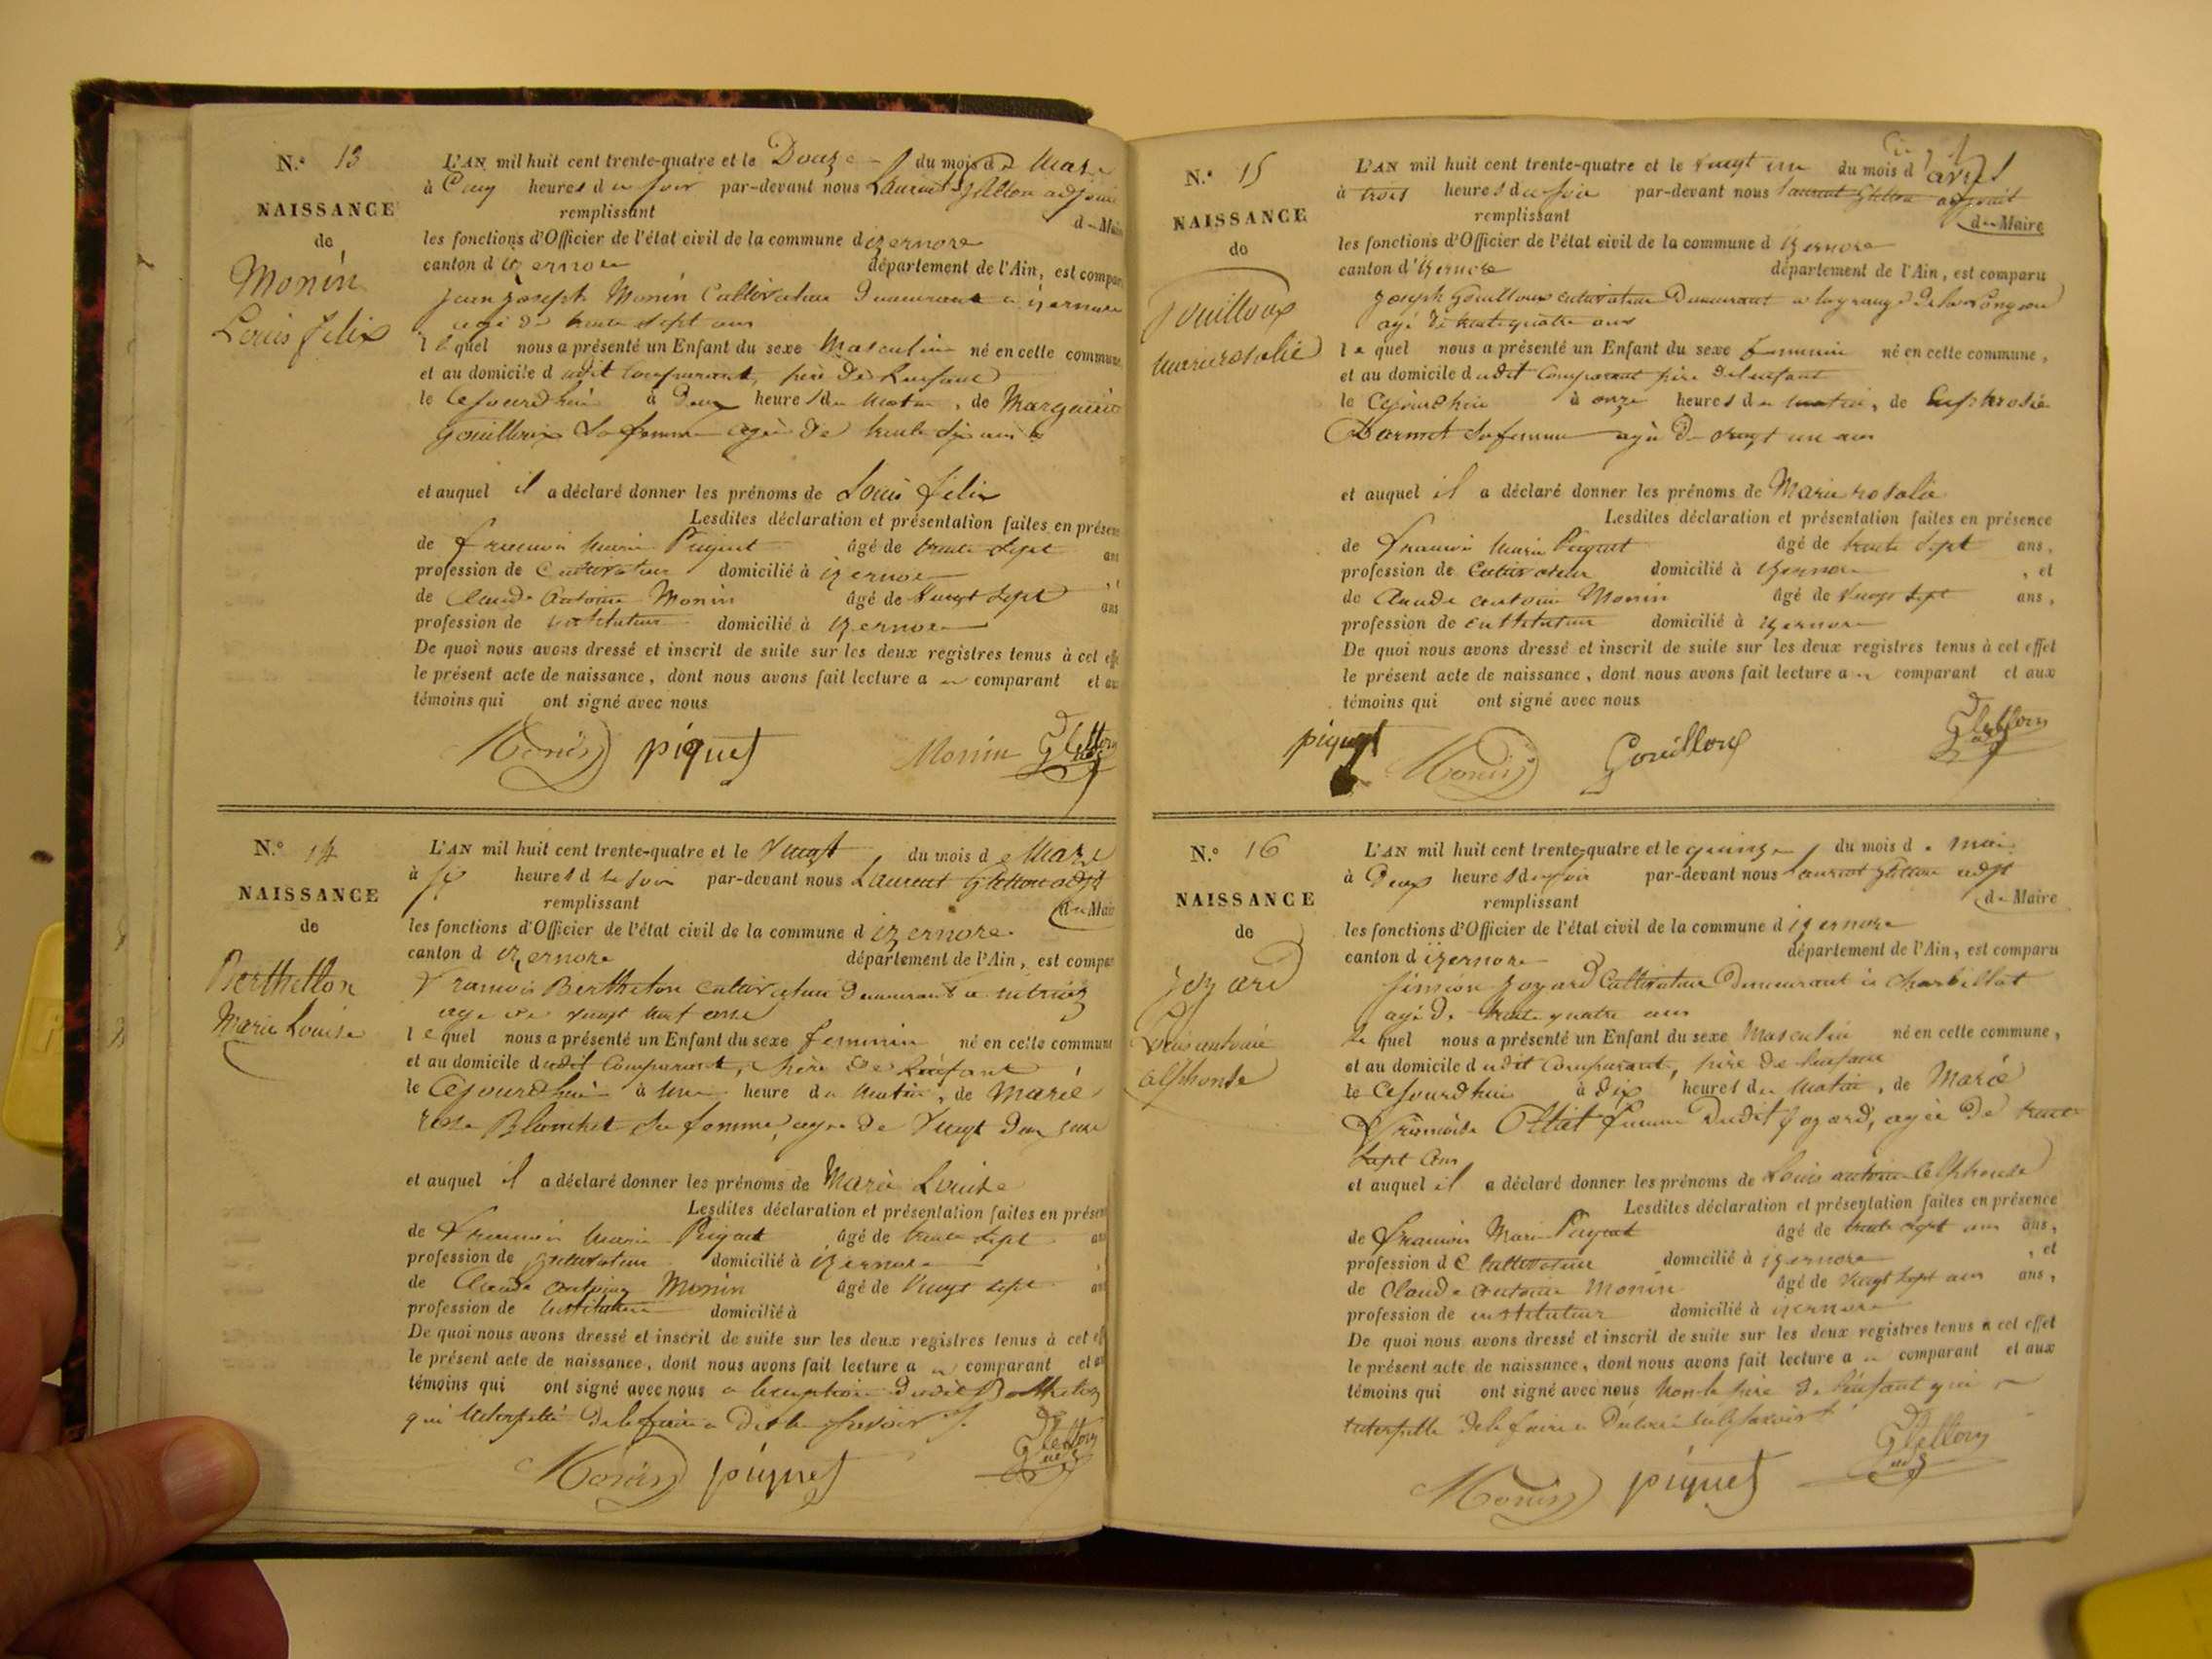 N.° 13
NAISSANCE
de
Monin
Louis felix
L'AN mil huit cent trente-quatre et le Douze du mois de Mars
à Cinq heures du soir par-devant nous Laurent Gletton adjoint
remplissant du Maire
les fonctions d'Officier de l'état civil de la commune d izernore
canton d izernore département de l'Ain, est comparu
jean joseph Monin Cultivateur Demeurant a izernore
agé de trente sept ans
lequel nous a présenté un Enfant du sexe Masculin né en cette commune
et au domicile dudit Comparant, père de Lenfant
le Cejourdhui à Deux heures du Matin, de Margueritte
Gouilloux sa femme agée de trente six ans
et auquel il a déclaré donner les prénoms de Louis felix
Lesdites déclaration et présentation faites en présence
de francois Marie Piquet âgé de trente sept ans
profession de Cultivateur domicilié à izernore
de Claude Antoine Monin âgé de Vingt sept ans
profession de instituteur domicilié à izernore
De quoi nous avons dressé et inscrit de suite sur les deux registres tenus à cet effet
le présent acte de naissance, dont nous avons fait lecture au comparant et aux
témoins qui ont signé avec nous
Monin piquet Monin Gletton
N.° 14
NAISSANCE
de
Berthetton
Marie Louise
L'AN mil huit cent trente-quatre et le Vingt du mois de Mars
à six heures du soir par-devant nous Laurent Gletton adjt
remplissant du Maire
les fonctions d'Officier de l'état civil de la commune d izernore
canton d izernore département de l'Ain, est comparu
francois Bertheton cultivateur Demeurant a
agé de vingt huit ans
lequel nous a présenté un Enfant du sexe feminin né en cette commune
et au domicile dudit Comparant, père de Lenfant
le Cejourdhui à Une heure du Matin, de Marie
rose Blanchet sa femme, agée de Vingt Deux ans
et auquel il a déclaré donner les prénoms de Marie Louise
Lesdites déclaration et présentation faites en présence
de francois Marie Piquet âgé de trente sept ans
profession de Cultivateur domicilié à izernore
de Claude Antoine Monin âgé de Vingt sept ans
profession de instituteur domicilié à
De quoi nous avons dressé et inscrit de suite sur les deux registres tenus à cet effet
le présent acte de naissance, dont nous avons fait lecture au comparant et aux
témoins qui ont signé avec nous a lexception dudit Bertheton
qui interpellé de le faire a Dit ne savoir
Monin piquet Gletton adjt
N.° 15
NAISSANCE
de
Gouilloux
Marie rosalie
L'AN mil huit cent trente-quatre et le vingt un du mois d avril
à trois heures du soir par-devant nous Laurent Gletton adjoint
remplissant du Maire
les fonctions d'Officier de l'état civil de la commune d izernore
canton d'izernore département de l'Ain, est comparu
joseph Gouilloux cultivateur Demeurant a
agé de trente quatre ans
lequel nous a présenté un Enfant du sexe feminin né en cette commune,
et au domicile dudit Comparant père de lenfant
le Cejourdhui à onze heures du matin, de Euphrosie
Darmet sa femme agée de vingt un ans
et auquel il a déclaré donner les prénoms de Marie rosalie
Lesdites déclaration et présentation faites en présence
de francois Marie Piquet âgé de trente sept ans,
profession de Cultivateur domicilié à izernore, et
de Claude antoine Monin âgé de vingt sept ans,
profession de instituteur domicilié à izernore
De quoi nous avons dressé et inscrit de suite sur les deux registres tenus à cet effet
le présent acte de naissance, dont nous avons fait lecture au comparant et aux
témoins qui ont signé avec nous
piquet Monin Gouilloux Gletton
N.° 16
NAISSANCE
de
Jozard
Louis antoine
alphonse
L'AN mil huit cent trente-quatre et le quinze du mois de mai
à Deux heures du soir par-devant nous Laurent Gletton adjt
remplissant du Maire
les fonctions d'Officier de l'état civil de la commune d izernore
canton d izernore département de l'Ain, est comparu
simeon Jozard Cultivateur Demeurant à charbillat
agé de trente quatre ans
lequel nous a présenté un Enfant du sexe Masculin né en cette commune,
et au domicile dudit Comparant, père de lenfant
le Cejourdhui à dix heures du Matin, de Marie
francoise femme Dudit Jozard, agée de trente
sept ans
et auquel il a déclaré donner les prénoms de Louis antoine alphonse
Lesdites déclaration et présentation faites en présence
de francois Marie Piquet âgé de trente sept ans ans,
profession de Cultivateur domicilié à izernore, et
de Claude antoine Monin âgé de vingt sept ans ans,
profession de instituteur domicilié à izernore
De quoi nous avons dressé et inscrit de suite sur les deux registres tenus à cet effet
le présent acte de naissance, dont nous avons fait lecture au comparant et aux
témoins qui ont signé avec nous non le père de lenfant qui
interpellé de le faire a Déclaré ne le savoir
Monin piquet Gletton adjt